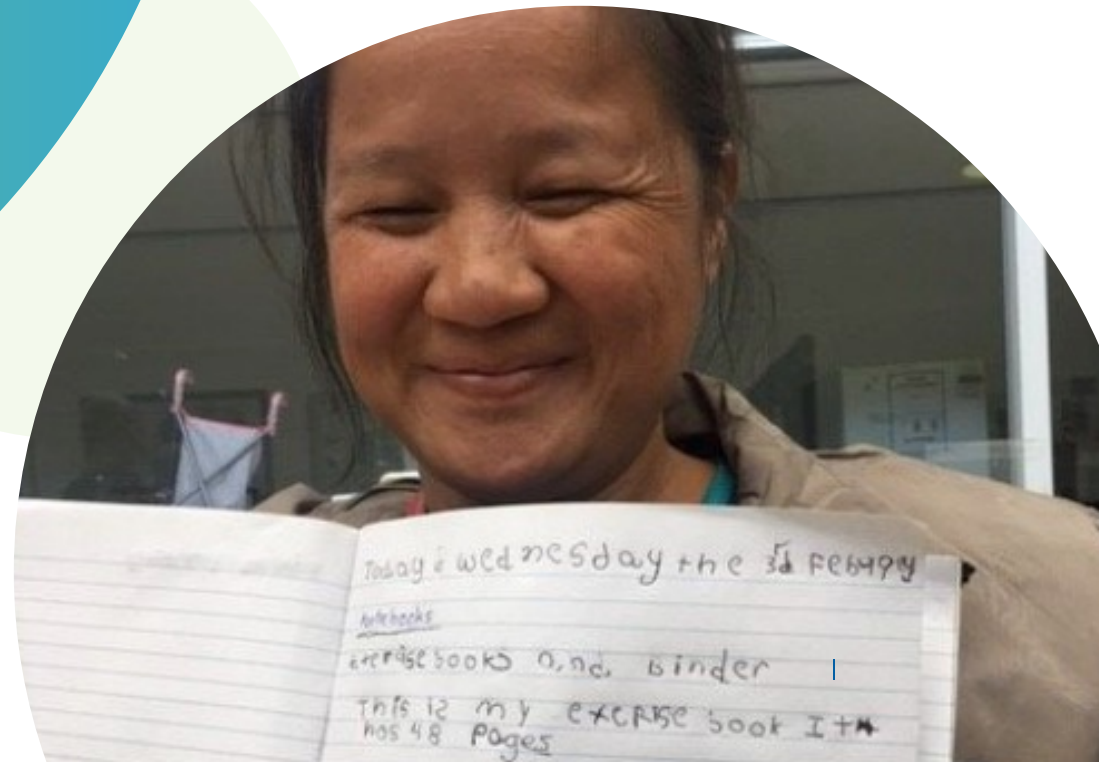 Today is wednesday the 3rd Febuary
notebooks
exercisebooks and binder
This is my exercise book It
has 48 pages